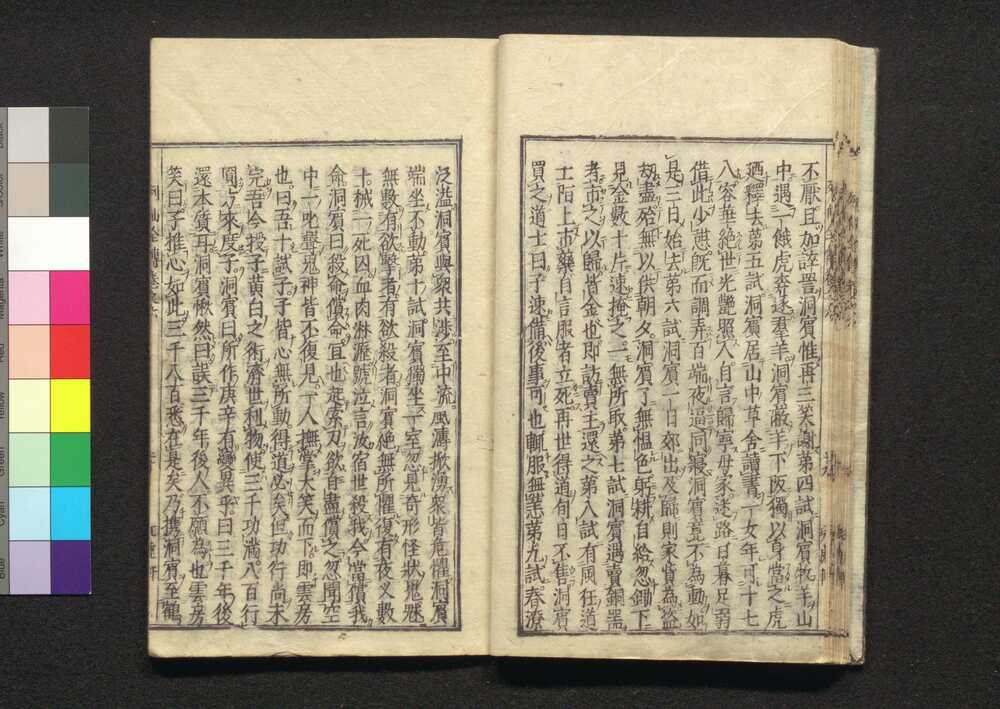 不厭且加誶詈洞賓惟再三笑謝第四試洞賓牧羊山
中遇一餓虎奔逐羣羊洞賓蔽羊下阪獨以身當之虎
廼釋去第五試洞賓居山中草舍讀書一女年可十七
八容華絕世光艷照人自言歸寧母家迷路日暮足弱
借此少憩既而調弄百端夜逼同寢洞賓竟不為動如
是三日始去第六試洞賓一日郊出及歸則家貲為盜
劫盡殆無以供朝夕洞賓了無慍色躬耕自給忽鋤下
見金數十片速掩之一無所取第七試洞賓遇賣銅器
者市之以歸皆金也即訪賣主還之第八試有風狂道
士陌上市藥自言服者立死再世得道旬日不售洞賓
買之道士曰子速備後事可也輒服無恙第九試春潦
泛溢洞賓與眾共涉至中流風濤掀湧眾皆危懼洞賓
端坐不動第十試洞賓獨坐一室忽見奇形怪狀鬼魅
無數有欲擊者有欲殺者洞賓絕無所懼復有夜叉數
十械一死囚血肉淋漓號泣言汝宿世殺我今當償我
命洞賓曰殺命償命宜也起索刀欲自盡償之忽聞空
中一叱聲鬼神皆不復見一人撫掌大笑而下即雲房
也曰吾十試子子皆心無所動得道必矣但功行尚未
完吾今授子黃白之術濟世利物使三千功滿八百行
圓方來度子洞賓曰所作庚辛有變異乎曰三千年後
還本質耳洞賓愀然曰誤三千年後人不願為也雲房
笑曰子推心如此三千八百悉在是矣乃攜洞賓至鶴